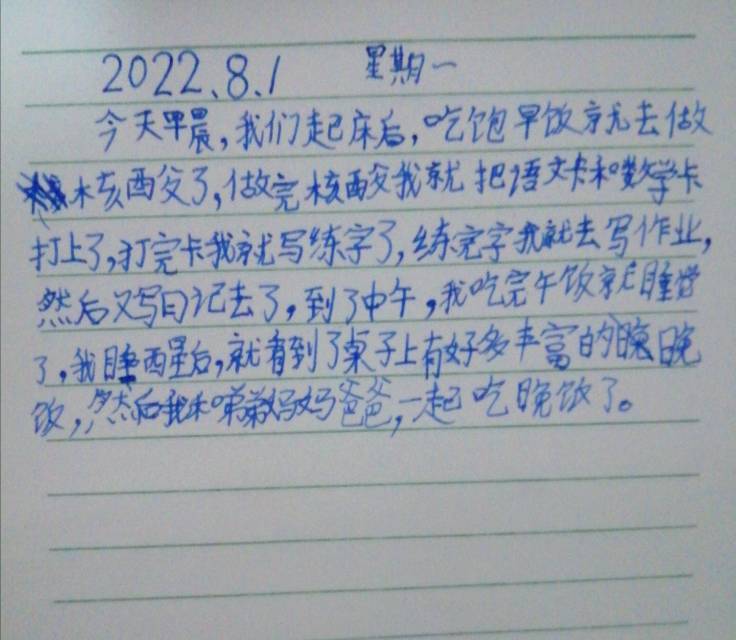 2022.8.1 星期一
今天早晨,我们起床后,吃饱早饭就去做
核酉夋了,做完核酸我就把语文卡和数学卡
打上了,打完卡我就写练字了,练完字我就去写作业,
然后又写日记去了,到了中午,我吃完午饭就睡觉
了,我睡酉星后,就看到了桌子上有好多丰富的晚晚
饭,然后我和弟弟妈妈爸爸,一起吃晚饭了。